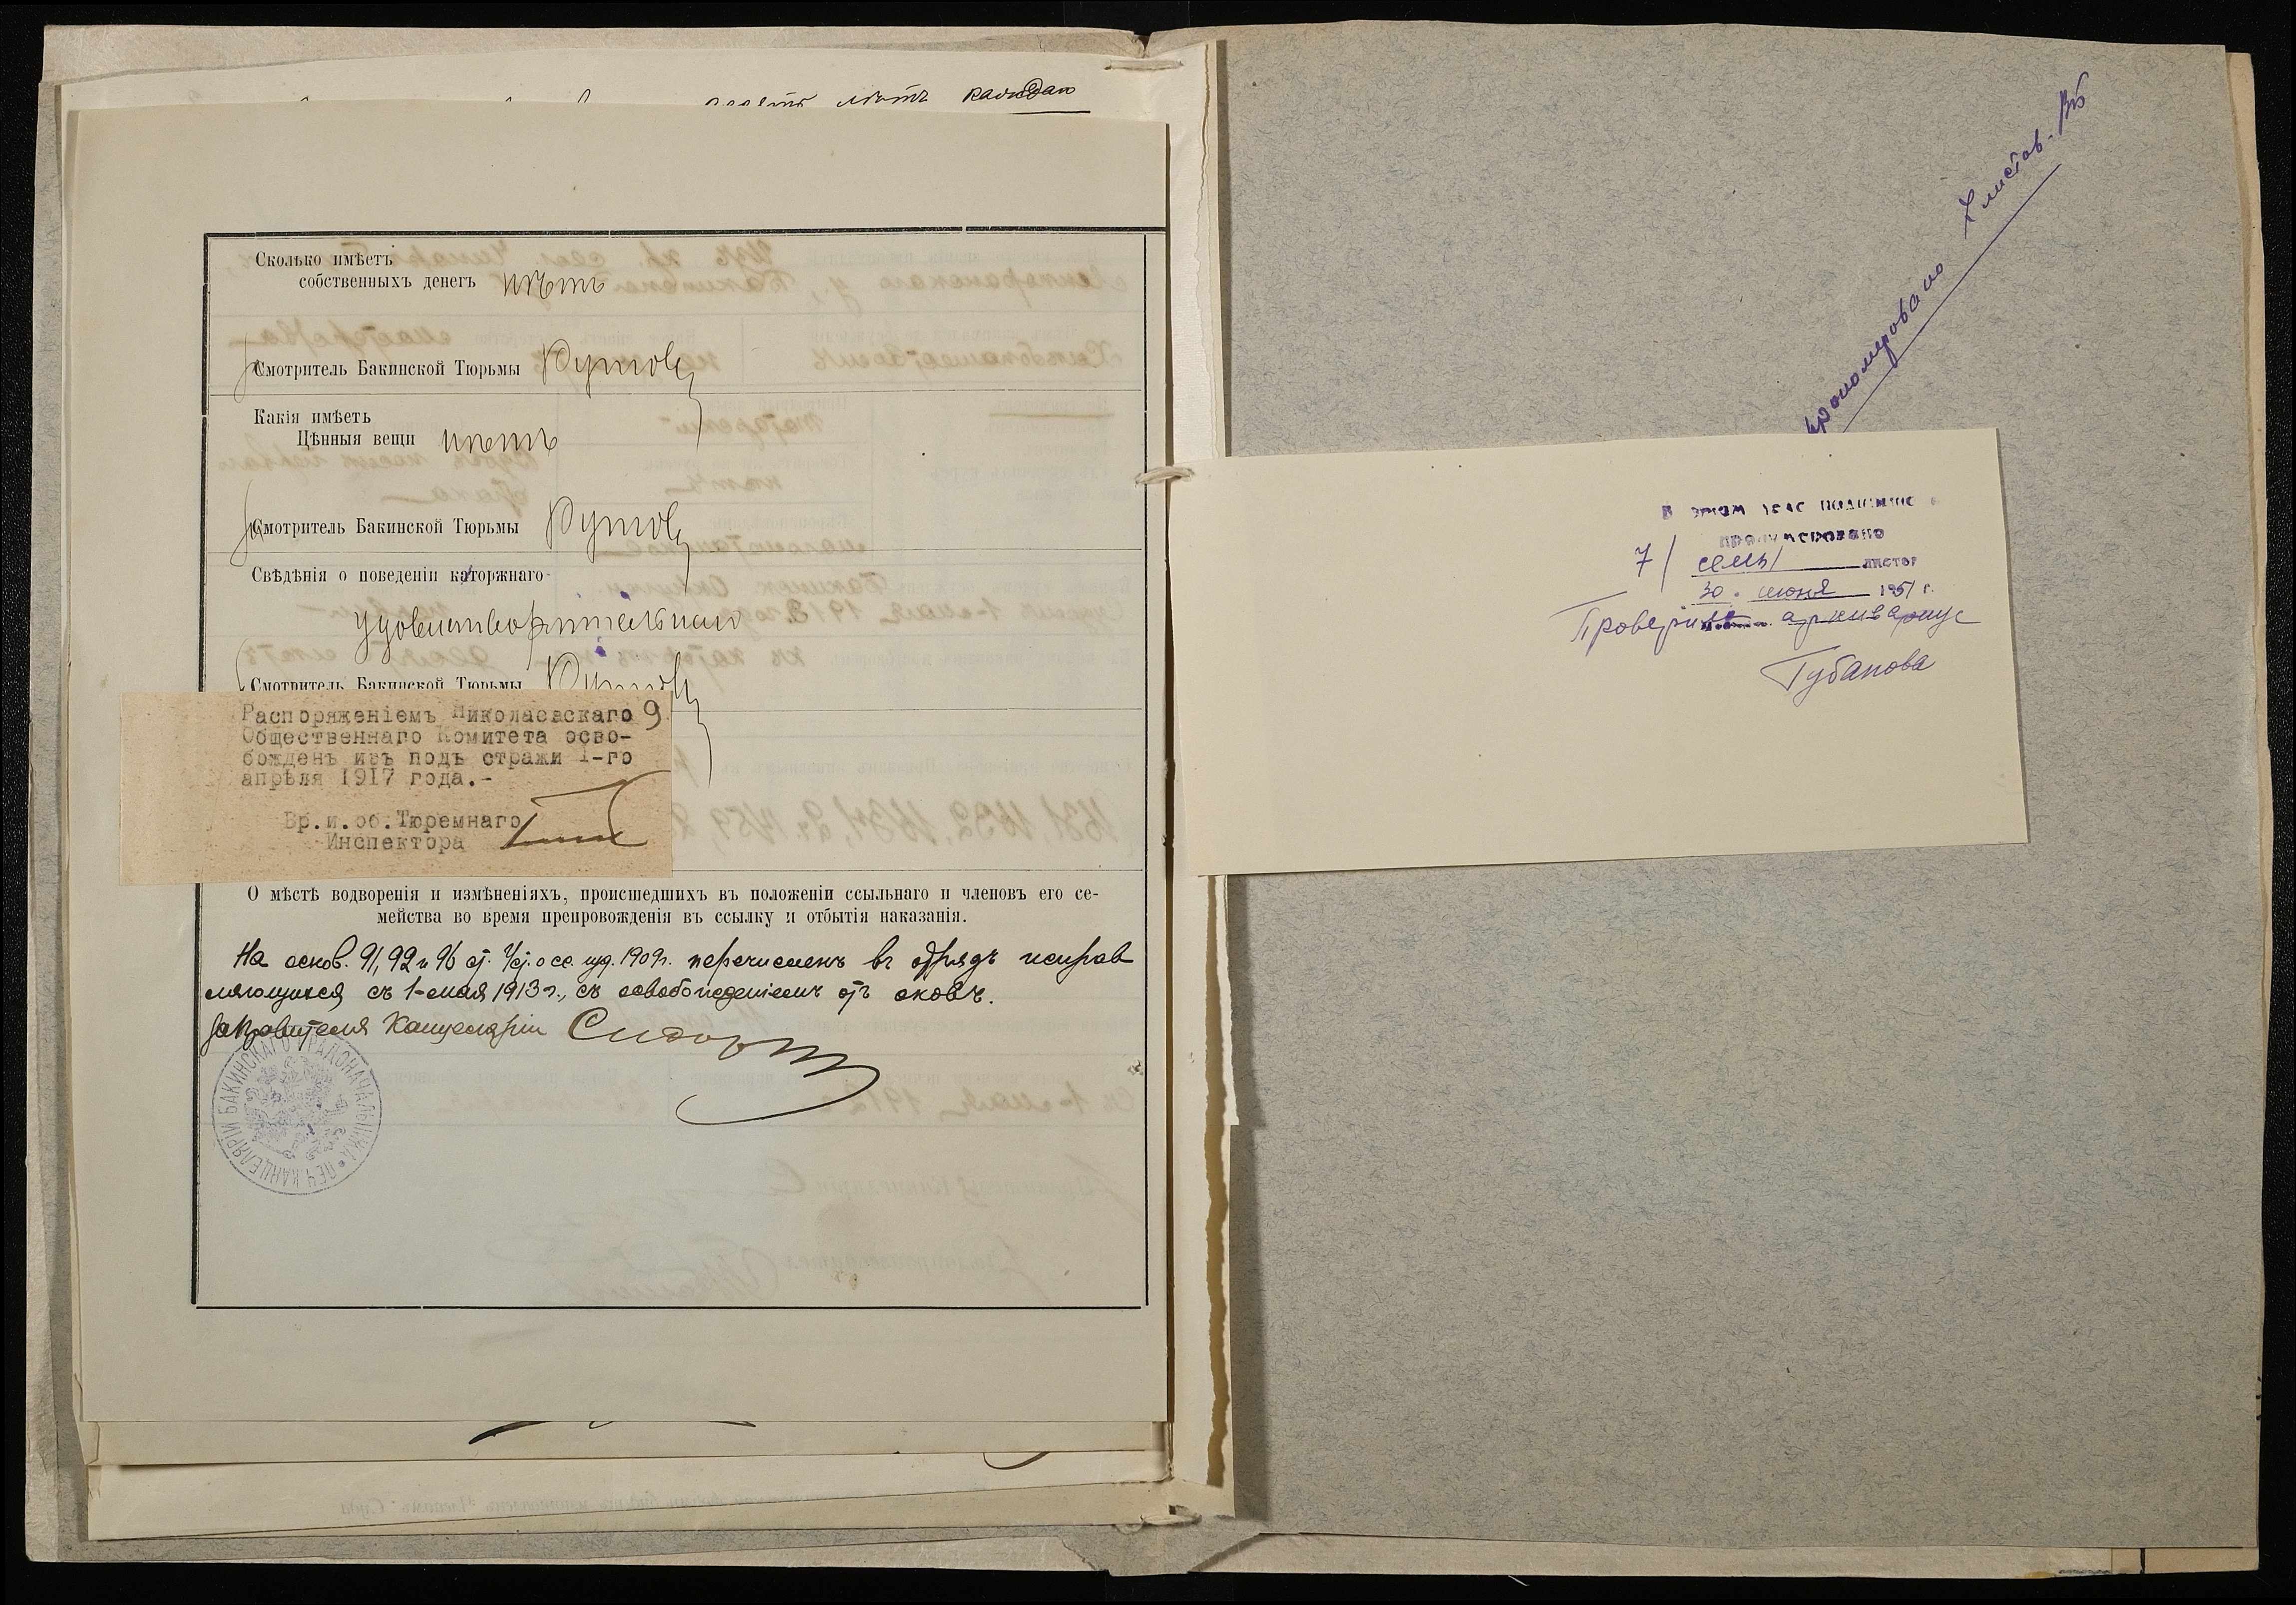 лѣтъ каждаго
Сколько имѣетъ
собственныхъ денегъ нѣтъ
Смотритель Бакинской Тюрьмы
Какія имѣетъ
Цѣнныя вещи нѣтъ
Смотритель Бакинской Тюрьмы
Свѣдѣнія о поведеніи каторжнаго
удовлетворительнаго
Смотритель Бакинской Тюрьмы
Распоряженіемъ Николаевскаго 9
Общественнаго Комитета осво-
божденъ изъ подъ стражи 1-го
апрѣля 1917 года.-
Вр.и.об.Тюремнаго
Инспектора
О мѣстѣ водворенія и измѣненіяхъ, происшедшихъ въ положеніи ссыльнаго и членовъ его се-
мейства во время препровожденія въ ссылку и отбытія наказанія.
На основ. 91, 92 и 96 ст. Уст. о сс. изд. 1909г. перечисленъ въ отрядъ исправ
ляющихся съ 1-мая 1913 г., съ освобожденіемъ отъ оковъ.
За Правителя Канцеляріи
ПЕЧ. КАНЦЕЛЯРІИ БАКИНСКАГО ГРАДОНАЧАЛЬНИКА
Пронумеровано 7 листов.
В этом деле подшито и
пронумеровано
7/ семь/ листов
30. июня 1951 г.
Проверил архивариус
Губанова